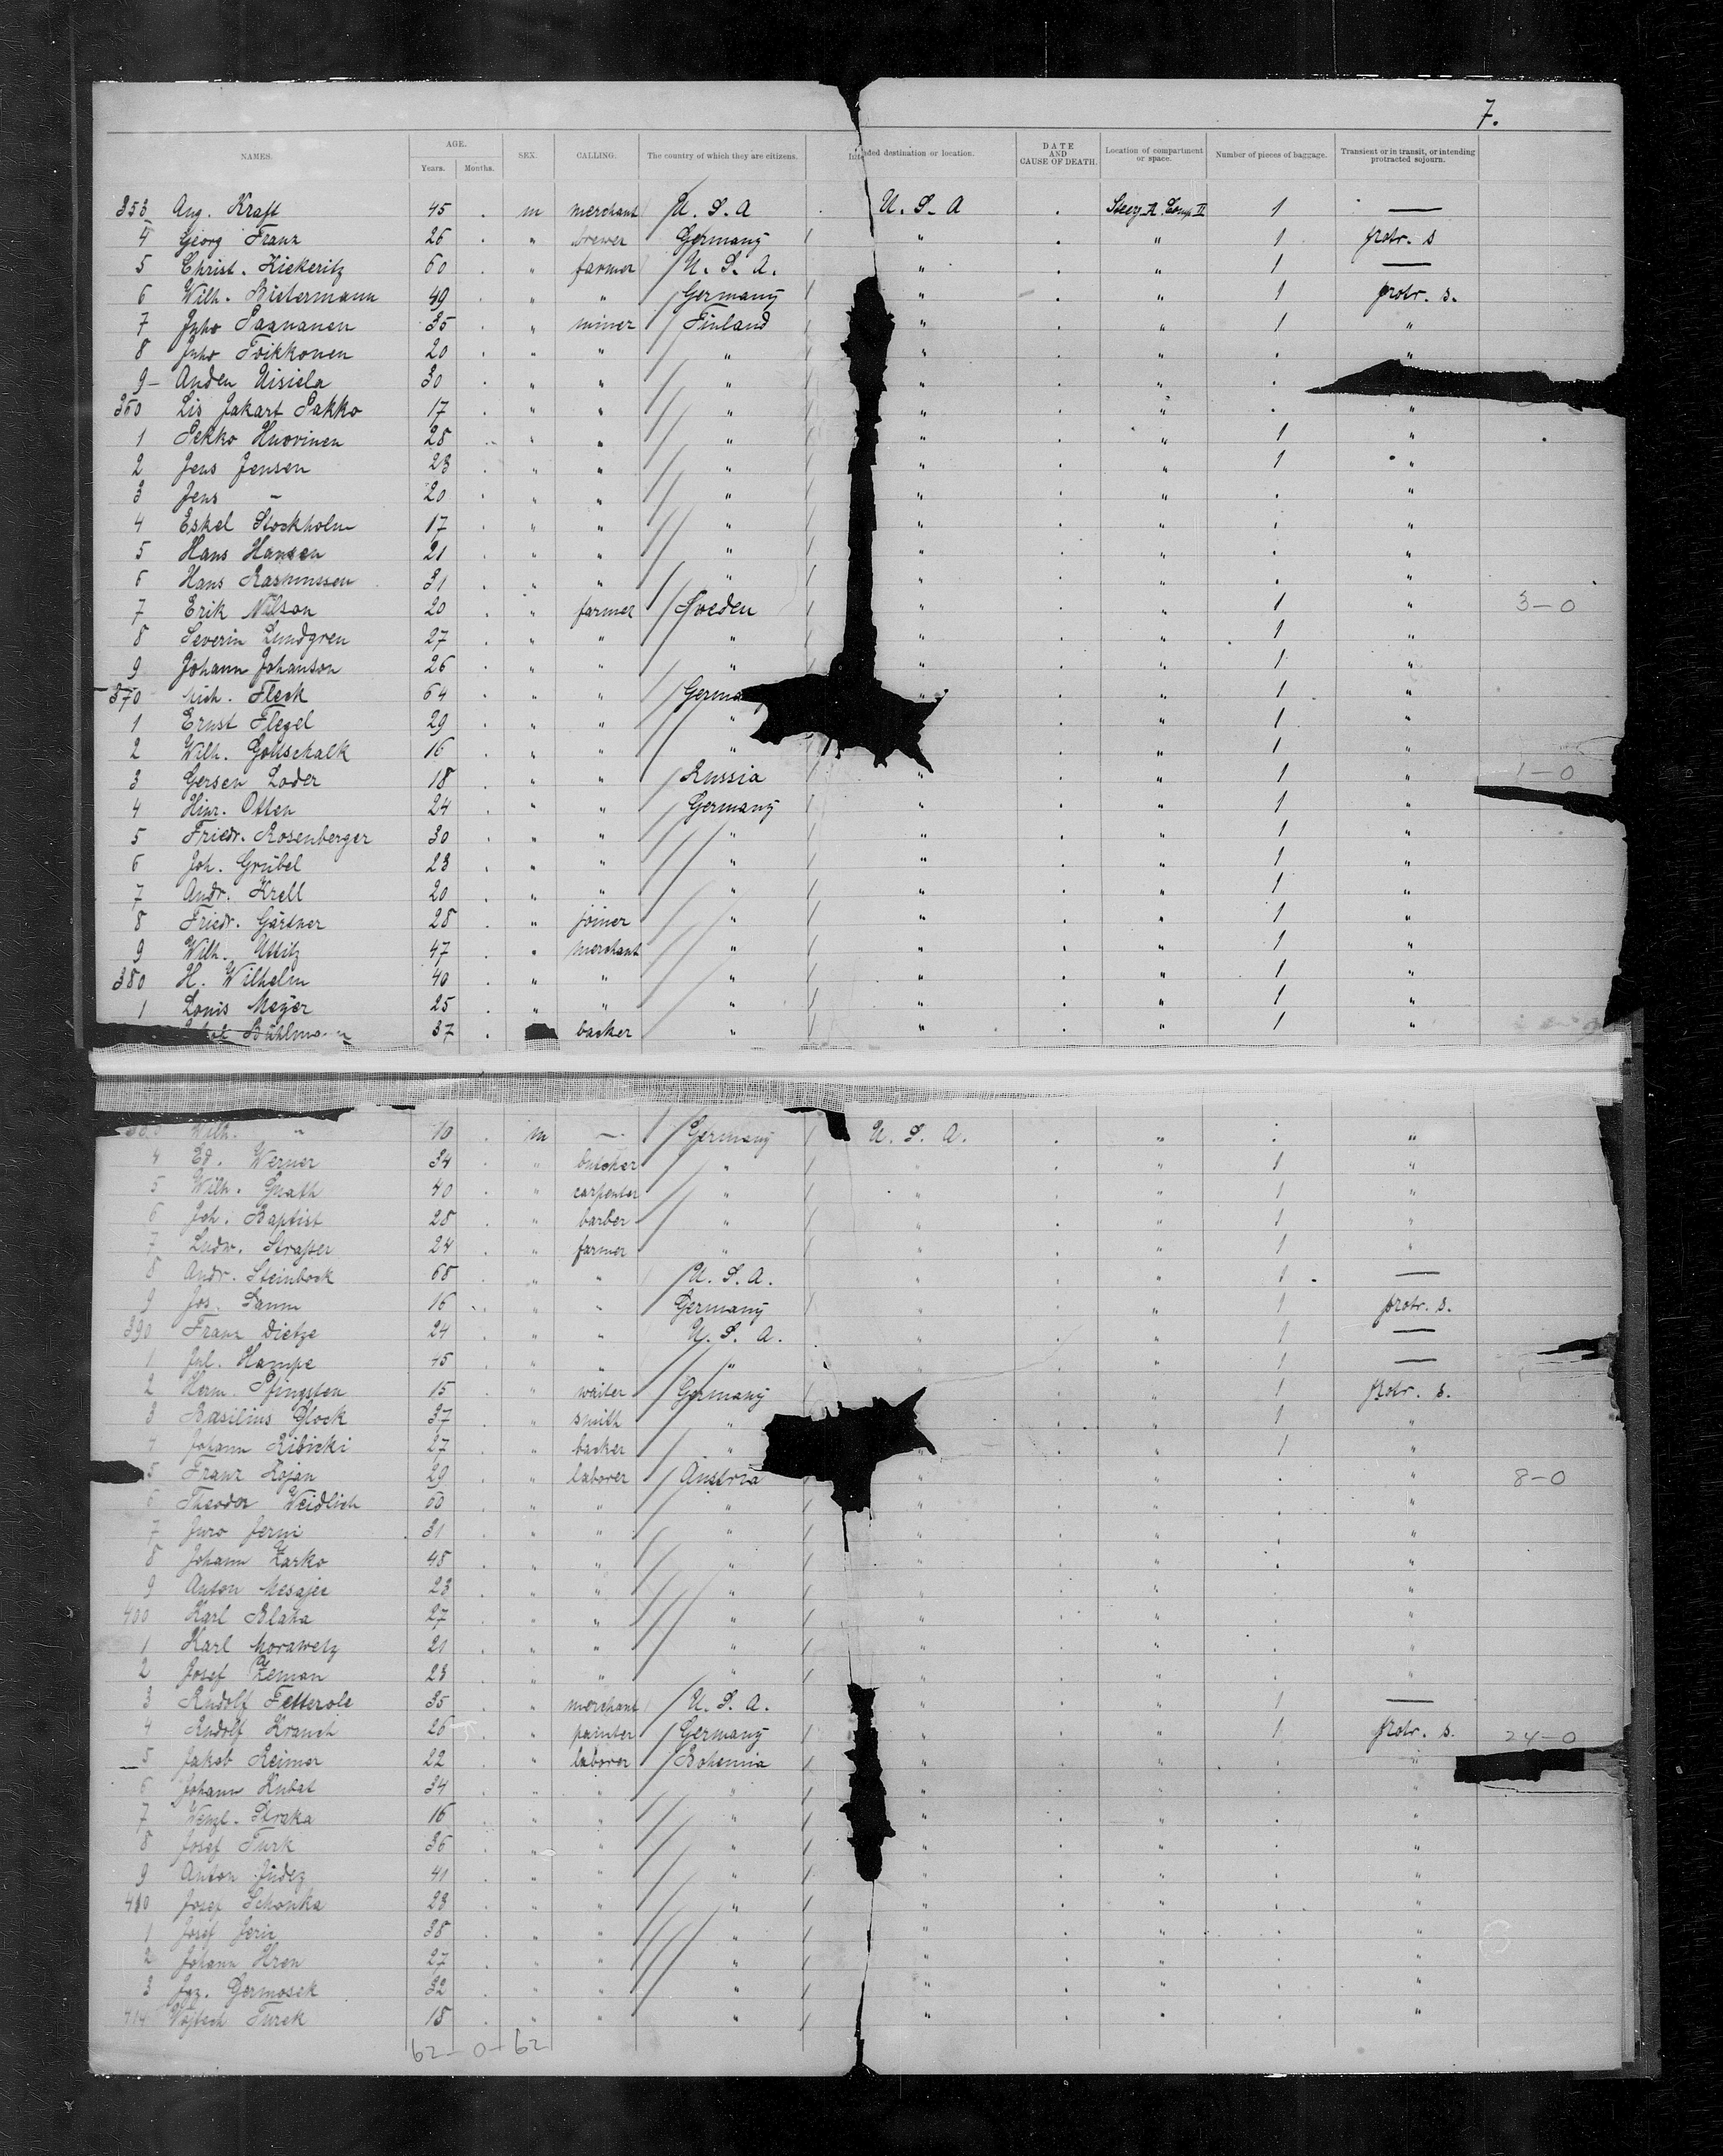 7.
NAMES. AGE. Years. Months. SEX. CALLING. The country of which they are citizens. Intended destination or location. DATE AND CAUSE OF DEATH. Location of compartment or space. Number of pieces of baggage. Transient or in transit, or intending protracted sojourn.
353 Aug. Kraft 45 . m merchant U. S. A U. S. A . Steer. A. Comp II 1 —
4 Georg Franz 26 . " brewer Germany " . " 1 protr. s
5 Christ. Kickeritz 60 . " farmer U. S. A. " . " 1 —
6 Wilh. Bistermann 49 . " " Germany " . " 1 protr. s.
7 Juho Saananen 35 . " miner Finland " . " 1 "
8 Juho Toikkonen 20 . " " " " . " . "
9 — Anden Uisiela 30 . " " " " . " .
360 Lis Jakart Pakko 17 . " " " " . " . "
1 Pekko Huovinen 28 . " " " " . " 1 "
2 Jens Jensen 23 . " " " " . " 1 "
3 Jens — 20 . " " " " . " . "
4 Eskel Stockholm 17 . " " " " . " . "
5 Hans Hansen 21 . " " " " . " . "
6 Hans Rasmussen 31 . " " " " . " . "
7 Erik Nilson 20 . " farmer Sweden " . " 1 " 3-0
8 Severin Lundgren 27 . " " " " . " 1 "
9 Johann Johanson 26 . " " " " . " 1 "
370 Mich. Fleck 64 . " " Germa " . " 1 "
1 Ernst Flegel 29 . " " " . " 1 "
2 Wilh. Gottschalk 16 . " " " . " 1 "
3 Gersen Loder 18 . " " Russia " . " 1 " 1-0
4 Hinr. Otten 24 . " " Germany " . " 1 "
5 Friedr. Rosenberger 30 . " " " " . " 1 "
6 Joh. Grübel 23 . " " " " . " 1 "
7 Andr. Krell 20 . " " " " . " 1 "
8 Friedr. Gärtner 28 . " joiner " " . " 1 "
9 Wilh. Uttitz 47 . " merchant " " . " 1 "
380 H. Wilhelm 40 . " " " " . " 1 "
1 Louis Meyer 25 . " " " " . " 1 "
Bühlmann 37 . backer " " . " 1 "
Wilh. " 10 . m — Germany U. S. A. . " . "
4 Ed. Werner 34 . " butcher " " . " 1 "
5 Wilh. Gnath 40 . " carpenter " " . " 1 "
6 Joh. Baptist 28 . " barber " " . " 1 "
7 Ludw. Strasser 24 . " farmer " " . " 1 "
8 Andr. Steinbock 68 . " " U. S. A. " . " 1 —
9 Jos. Damm 16 . " " Germany " . " 1 protr. s.
390 Franz Dietze 24 . " " U. S. A. " . " 1 —
1 Jul. Hampe 45 . " " " " . " 1 —
2 Herm. Pfingsten 15 . " waiter Germany " . " 1 protr. s.
3 Basilius Glock 37 . " smith " . " 1 "
4 Johann Ribicki 27 . " backer " " . " 1 "
5 Franz Kojan 29 . " laborer Austria " . " . " 8-0
6 Theodor Weidlich 60 . " " " " . " . "
7 Juro Jerni 31 . " " " " . " . "
8 Johann Zarko 48 . " " " " . " . "
9 Anton Mesajec 23 . " " " " . " . "
400 Karl Blaha 27 . " " " " . " . "
1 Karl Morawetz 21 . " " " " . " . "
2 Josef Zeman 23 . " " " " . " . "
3 Rudolf Fetterole 35 . " merchant U. S. A. " . " 1 —
4 Rudolf Kranich 26 " painter Germany " . " 1 protr. s. 24-0
5 Jakob Reimer 22 . " laborer Bohemia " . " . "
6 Johann Kubat 34 . " " " " . " . "
7 Wenzl. Straka 16 . " " " " . " . "
8 Josef Turk 36 . " " " " . " . "
9 Anton Judez 41 . " " " " . " . "
410 Josef Schonka 23 . " " " " . " . "
1 Josef Jeric 38 . " " " " . " . "
2 Johann Hren 27 . " " " " . " . "
3 Joz. Germosek 32 . " " " " . " . "
414 Vojtech Turek 18 . " " " " . " . "
62-0-62